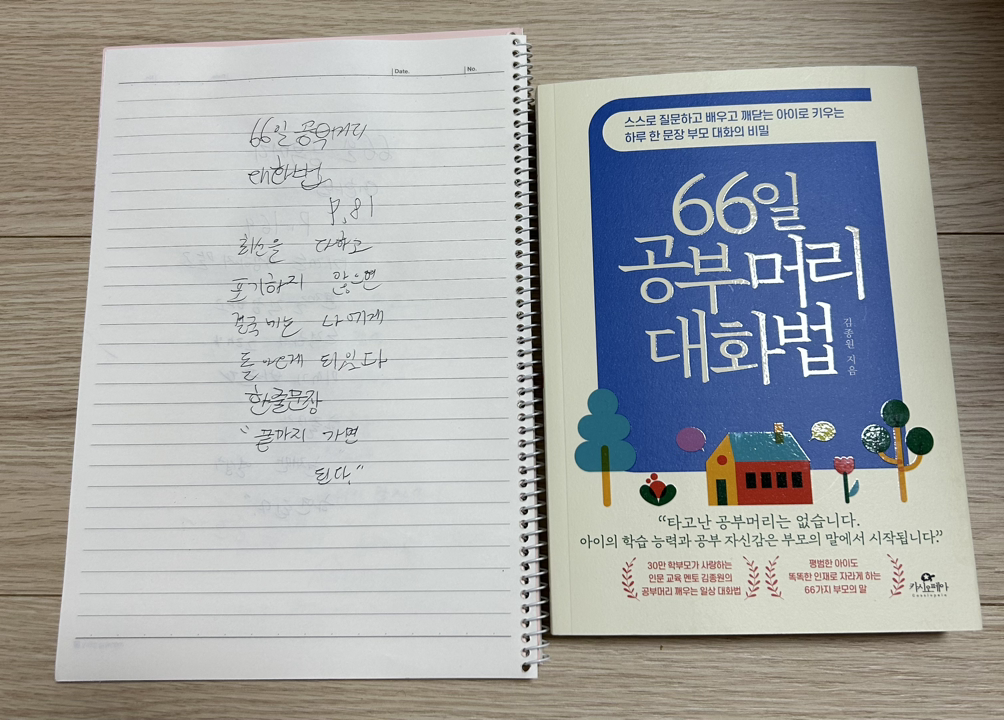 Date.
No.
66일 공부머리
대화법
P.81
최선을 다하고
포기하지 않으면
결국에는 나에게
돌아오게 되있다
한줄문장
"끝까지 가면
된다."
스스로 질문하고 배우고 깨닫는 아이로 키우는
하루 한 문장 부모 대화의 비밀
66일
공부머리
대화법
김종원 지음
“타고난 공부머리는 없습니다.
아이의 학습 능력과 공부 자신감은 부모의 말에서 시작됩니다.”
30만 학부모가 사랑하는
인문 교육 멘토 김종원의
공부머리 깨우는 일상 대화법
평범한 아이도
똑똑한 인재로 자라게 하는
66가지 부모의 말
카시오페아
Cassiopeia